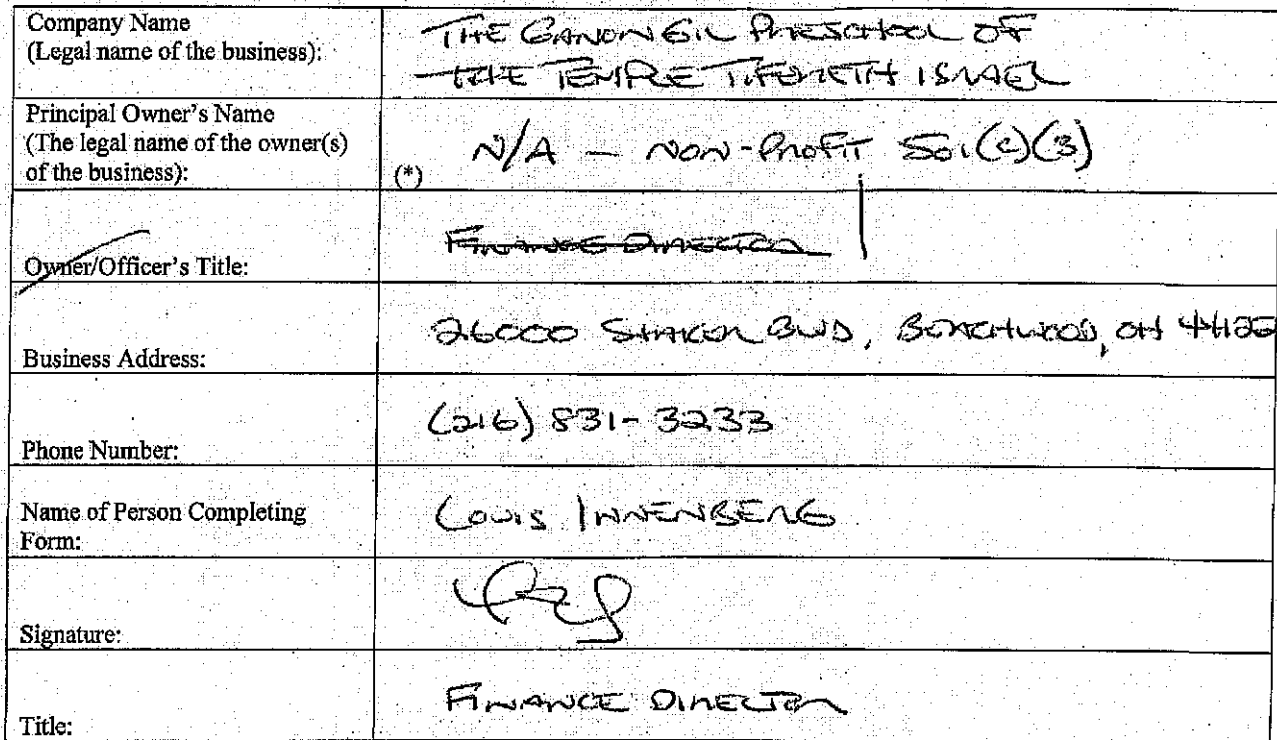 Company Name
(Legal name of the business):
THE GANON GIL PRESCHOOL OF
THE TEMPLE TIFERETH ISRAEL
Principal Owner's Name
(The legal name of the owner(s)
of the business):
(*)
N/A – NON-PROFIT 501(c)(3)
Owner/Officer's Title:
FINANCE DIRECTOR
Business Address:
26000 SHAKER BLVD, BEACHWOOD, OH 44122
Phone Number:
(216) 831-3233
Name of Person Completing
Form:
LOUIS
Signature:
Title:
FINANCE DIRECTOR